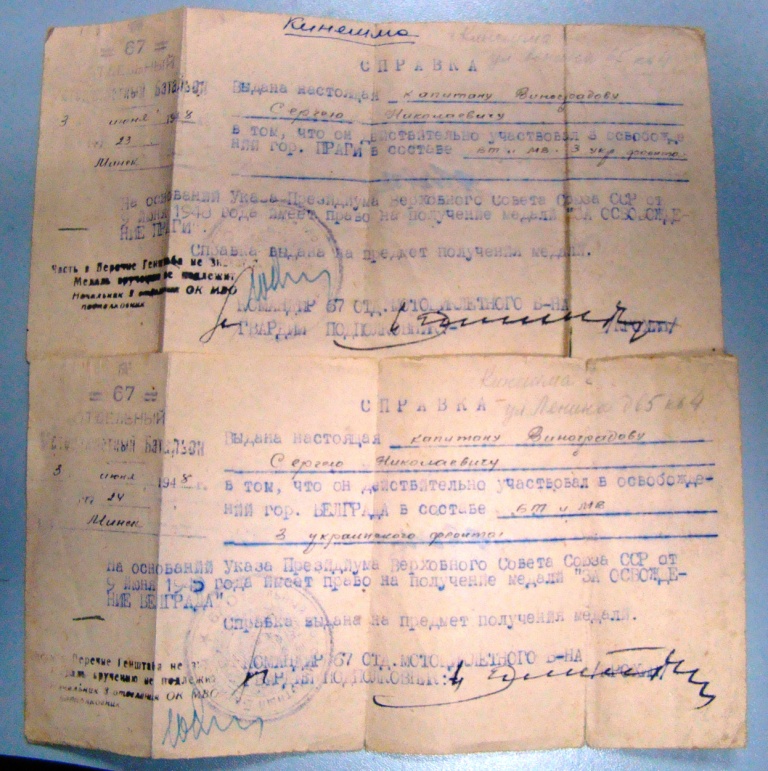 Кинешма
Кинешма
ул Ленина 65 кв 4
= 67 =
ОТДЕЛЬНЫЙ
Мотоциклетный Батальон
3 июня 1948
№ 23
Минск
СПРАВКА
Выдана настоящая капитану Виноградову
Сергею Николаевичу
в том, что он действительно участвовал в освобожде-
нии гор. ПРАГИ в составе БТ и МВ 3 укр фронта
На оснований Указа Президиума Верховного Совета Союза ССР от
9 июня 194 года имеет право на получение медали "ЗА ОСВОБОЖДЕ-
НИЕ ПРАГИ"
Справка выдана на предмет получения медали.
Часть в Перечне Генштаба не
Медаль вручению не подлежит
Начальник 3 отделения ОК МВО
подполковник
КОМАНДИР 67 ОТД.МОТОЦИКЛЕТНОГО Б-НА
ГВАРДИИ ПОДПОЛКОВНИК:
Кинешма
ул Ленина 65 кв 4
= 67 =
ОТДЕЛЬНЫЙ
Мотоциклетный Батальон
3 июня 1948
№ 24
Минск
СПРАВКА
Выдана настоящая капитану Виноградову
Сергею Николаевичу
в том, что он действительно участвовал в освобожде-
нии гор. БЕЛГРАДА в составе БТ и МВ
3 украинского фронта
На оснований Указа Президиума Верховного Совета Союза ССР от
9 июня 1945 года имеет право на получение медали "ЗА ОСВОБОЖДЕ-
НИЕ БЕЛГРАДА"
Справка выдана на предмет получения медали.
Перечне Генштаба не
вручению не подлежит
3 отделения ОК МВО
подполковник
КОМАНДИР 67 ОТД.МОТОЦИКЛЕТНОГО Б-НА
ГВАРДИИ ПОДПОЛКОВНИК: